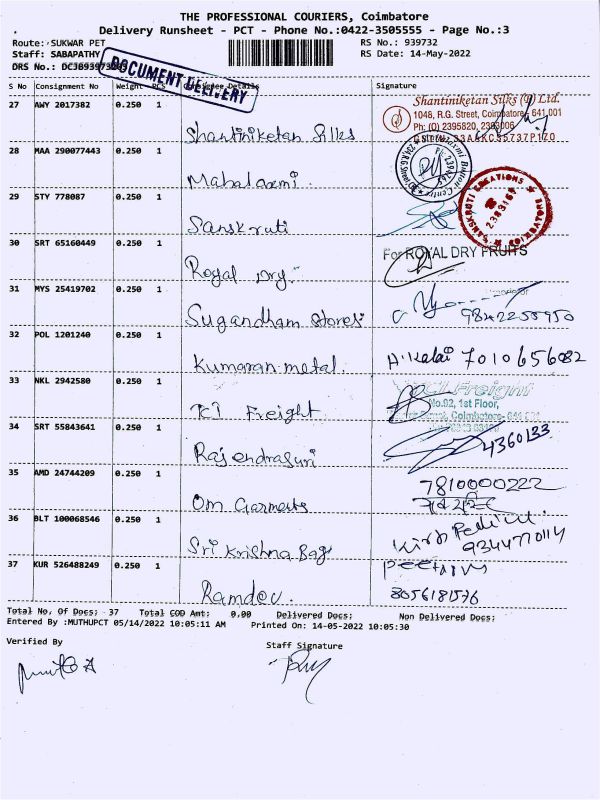 THE PROFESSIONAL COURIERS, Coimbatore
Delivery Runsheet - PCT - Phone No.:0422-3505555 - Page No.:3
Route: SUKWAR PET
RS No.: 939732
Staff: SABAPATHY
RS Date: 14-May-2022
DRS No.:
DOCUMENT DELIVERY
S No Consignment No Weight PCS Consignee Details Signature
27 AWY 2017382 0.250 1 Shantiniketan Silks
Shantiniketan Silks (I) Ltd.
1048, R.G. Street, Coimbatore - 641 001
28 MAA 290077443 0.250 1 Mahalaxmi.
29 STY 778087 0.250 1 Sanskruti
SANSKRUTI CREATIONS COIMBATORE
30 SRT 65160449 0.250 1 Royal Dry.
For ROYAL DRY FRUITS
31 MYS 25419702 0.250 1 Sugandham Stores
9842255950
32 POL 1201240 0.250 1 Kumaran metal.
A.Kalai 7010656082
33 NKL 2942580 0.250 1 TCI Freight
TCI Freight
No.92, 1st Floor,
34 SRT 55843641 0.250 1 Rajendrasuri
4360133
35 AMD 24744209 0.250 1 Om Garments
7810000222
36 BLT 100068546 0.250 1 Sri Krishna Bag
37 KUR 526488249 0.250 1 Ramdev.
8056181576
Total No, Of Docs: 37 Total COD Amt: 0.00 Delivered Docs: Non Delivered Docs:
Entered By :MUTHUPCT 05/14/2022 10:05:11 AM Printed On: 14-05-2022 10:05:30
Verified By
Staff Signature